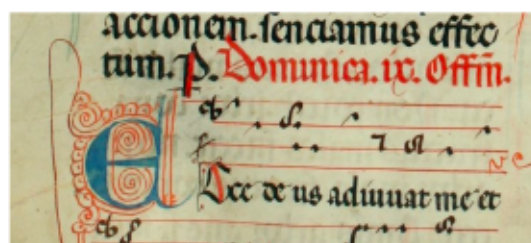 accionem. senciamus effec
tum. P. Dominica. ix. Offm.
Ecce de us adiuuat me et